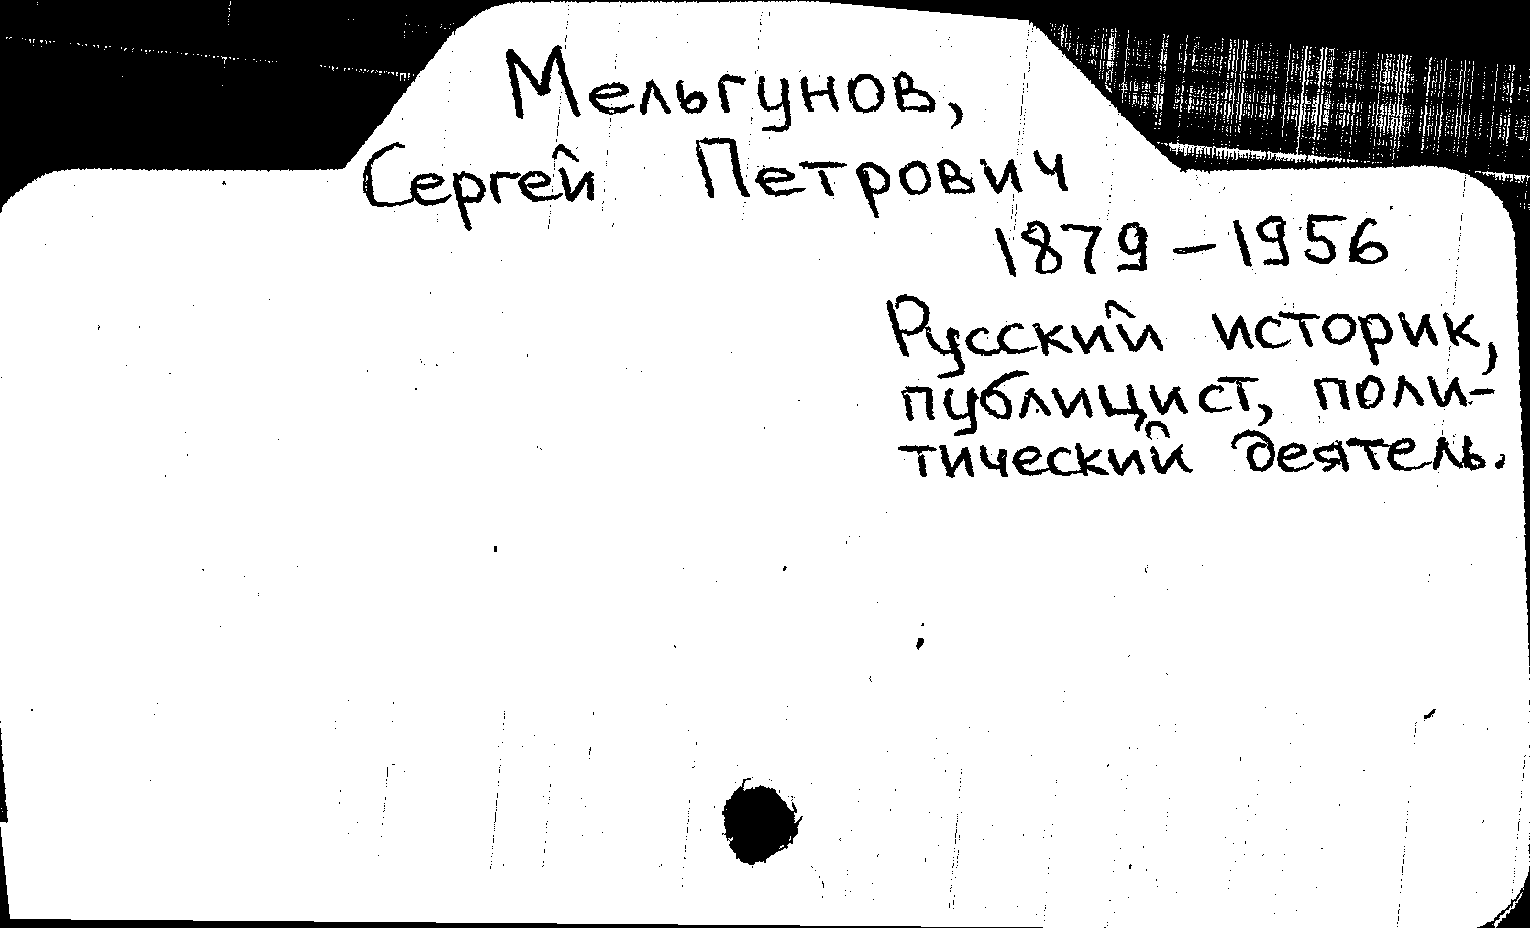 Мельгунов,
Сергей Петрович
1879-1956
Русский историк,
публицист, поли-
тический деятель.